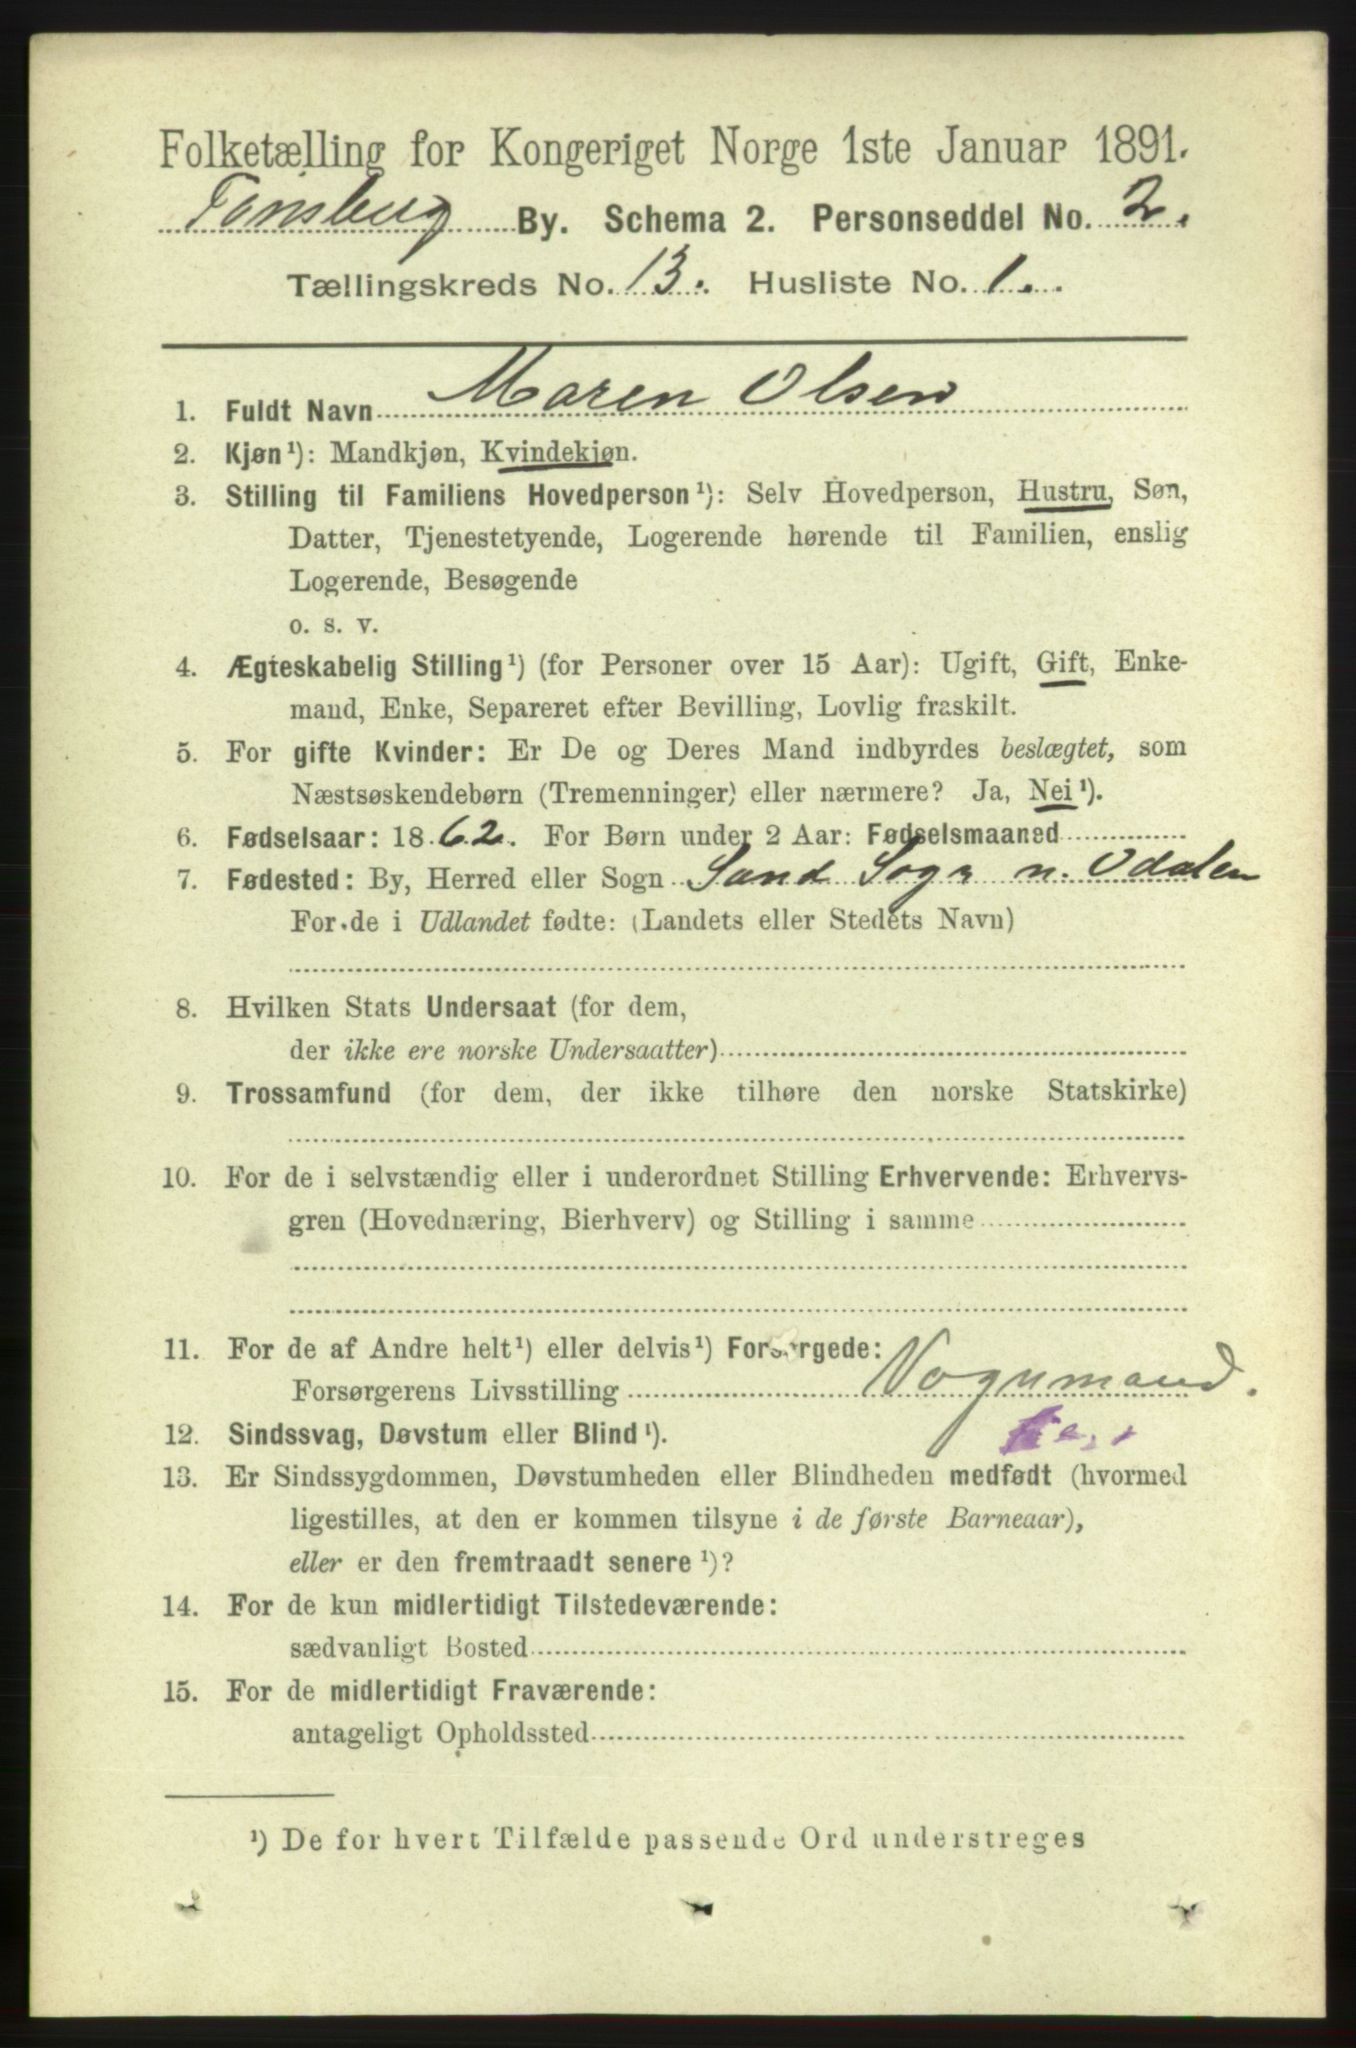 Folketælling for Kongeriget Norge 1ste Januar 1891.
Tønsberg By. Schema 2. Personseddel No. 2.
Tællingskreds No. 13. Husliste No. 1.
1. Fuldt Navn Maren Olsen
2. Kjøn¹): Mandkjøn, Kvindekjøn.
3. Stilling til Familiens Hovedperson¹): Selv Hovedperson, Hustru, Søn,
Datter, Tjenestetyende, Logerende hørende til Familien, enslig
Logerende, Besøgende
o. s. v.
4. Ægteskabelig Stilling¹) (for Personer over 15 Aar): Ugift, Gift, Enke-
mand, Enke, Separeret efter Bevilling, Lovlig fraskilt.
5. For gifte Kvinder: Er De og Deres Mand indbyrdes beslægtet, som
Næstsøskendebørn (Tremenninger) eller nærmere? Ja, Nei¹).
6. Fødselsaar: 1862. For Børn under 2 Aar: Fødselsmaaned
7. Fødested: By, Herred eller Sogn Sand Sogn n. Odalen
For de i Udlandet fødte: (Landets eller Stedets Navn)
8. Hvilken Stats Undersaat (for dem,
der ikke ere norske Undersaatter)
9. Trossamfund (for dem, der ikke tilhøre den norske Statskirke)
10. For de i selvstændig eller i underordnet Stilling Erhvervende: Erhvervs-
gren (Hovednæring, Bierhverv) og Stilling i samme
11. For de af Andre helt¹) eller delvis¹) Forsørgede:
Forsørgerens Livsstilling Vognmand.
12. Sindssvag, Døvstum eller Blind¹).
13. Er Sindssygdommen, Døvstumheden eller Blindheden medfødt (hvormed
ligestilles, at den er kommen tilsyne i de første Barneaar),
eller er den fremtraadt senere¹)?
14. For de kun midlertidigt Tilstedeværende:
sædvanligt Bosted
15. For de midlertidigt Fraværende:
antageligt Opholdssted
¹) De for hvert Tilfælde passende Ord understreges